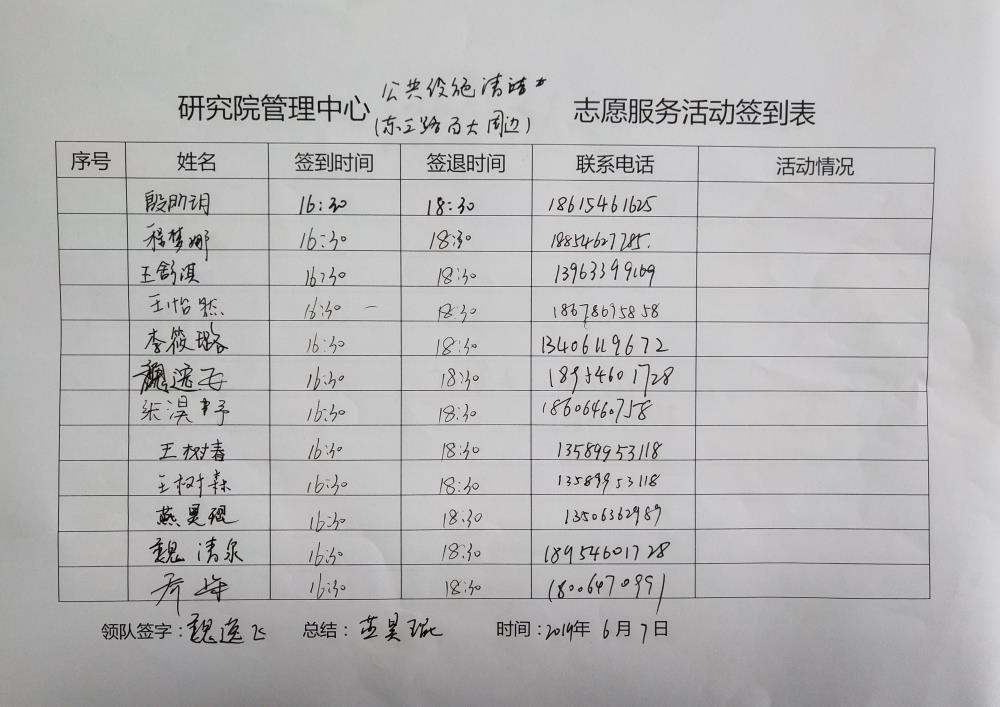 研究院管理中心 公共设施清洁 志愿服务活动签到表
(东三路百大周边)
序号 姓名 签到时间 签退时间 联系电话 活动情况
殷昀玥 16:30 18:30 18615461625
程梦娜 16:30 18:30 18854627785
王舒淇 16:30 18:30 13963399169
王怡然 16:30 18:30 18678695858
李筱璐 16:30 18:30 13406119672
魏逸飞 16:30 18:30 18954601728
张淏予 16:30 18:30 18606460758
王树春 16:30 18:30 13589953118
王树森 16:30 18:30 13589953118
燕昊琨 16:30 18:30 13506362989
魏清泉 16:30 18:30 18954601728
16:30 18:30 18006470991
领队签字:魏逸飞 总结:燕昊琨 时间:2019年 6月 7日